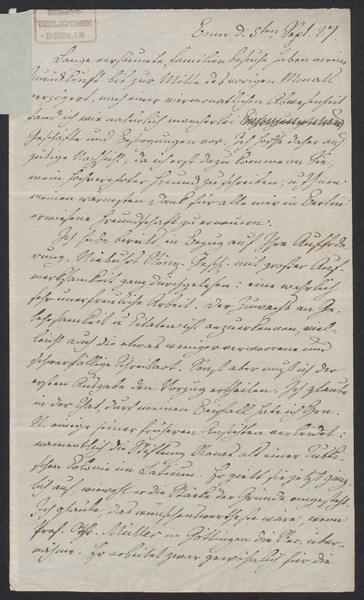 STAATS-
BIBLIOTHEK
BERLIN
Bonn d. 5ten Sept. 27.
Lange versäumte Familien besuche haben meine
Rückkunft bis zur Mitte des vorigen Monats
verzögert, nach einer viermonatlichen Abwesenheit
fand ich wie natürlich mancherlei
Geschäfte und Besorgungen vor. Ich hoffe daher auf
gütige Nachsicht, da ich erst dazu komme an Sie,
mein hochverehrter Freund, zu schreiben, u Ihnen
meinen wärmsten Dank für alle mir in Berlin
erwiesene Freundschaft zu erneuern.
Ich habe bereits, in Bezug auf Ihre Aufforde
rung, Niebuhrs Röm. Gesch. mit großer Auf-
merksamkeit ganz durchgelesen: eine wahrlich
sehr unerfreuliche Arbeit. Der Zuwachs an Ge-
lehrsamkeit u Citaten ist anzuerkennen, viel-
leicht auch die etwas weniger verworrene und
schwerfällige Schreibart. Sonst aber muß ich der
ersten Ausgabe den Vorzug ertheilen. Ich glaube
in der That, durch meinen Beifall habe ich Hrn.
N. einige seiner früheren Ansichten verleidet:
namentlich die Stiftung Roms als einer Etrus-
kischen Colonie in Latium. Er giebt sie jetzt gänz-
lich auf, wiewohl er die Stärke der Gründe eingesteht.
Ich glaube, das wünschenswertheste wäre, wenn
Prof. Otfr. Müller in Göttingen die Rec. über-
nähme. Er arbeitet zwar gewöhnlich für die